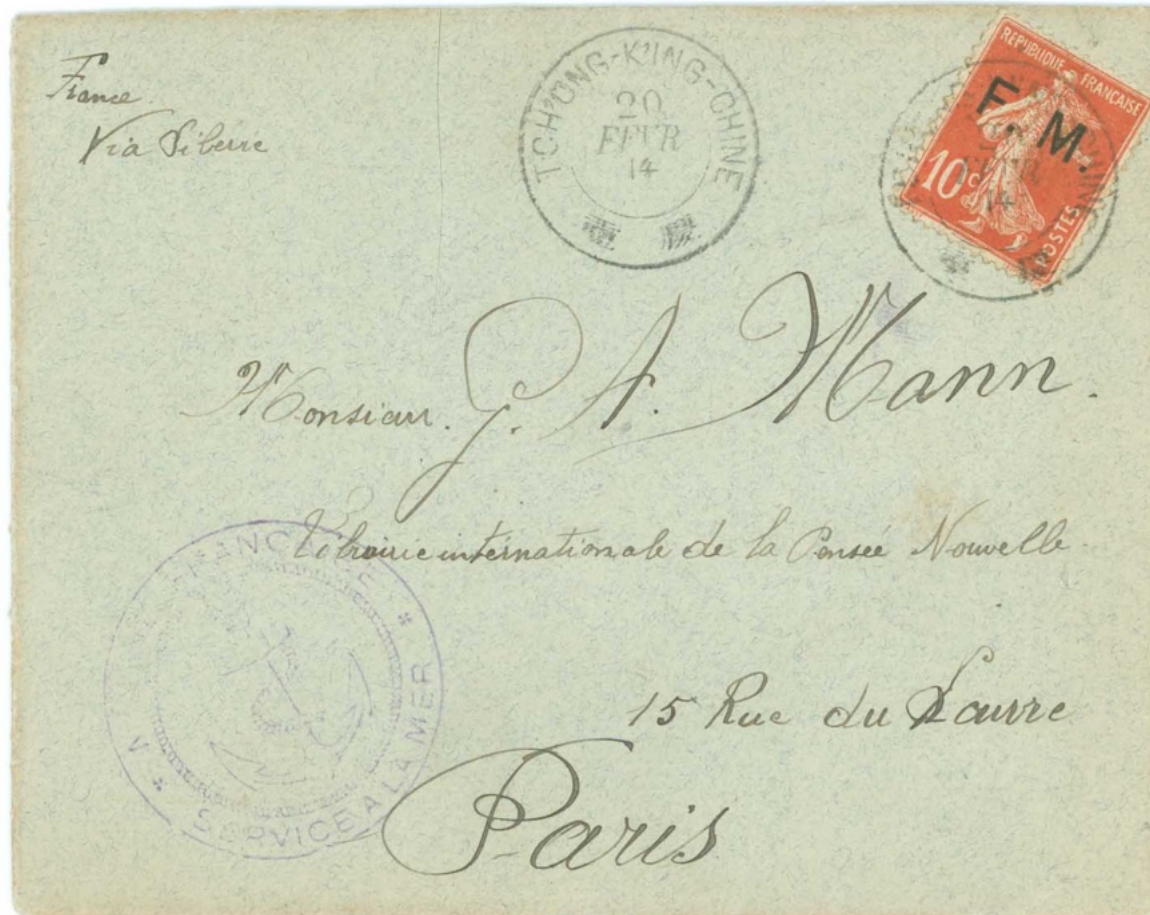 France
Via Siberie
TCH'ONG-K'ING-CHINE
20
FEVR
14
慶 重
REPUBLIQUE FRANÇAISE
F. M.
10c
POSTES
FEVR
14
CHINE
Monsieur. G. A. Mann.
Librairie internationale de la Pensée Nouvelle
15 Rue du Louvre
Paris
FRANCAISE
* SERVICE A LA MER *